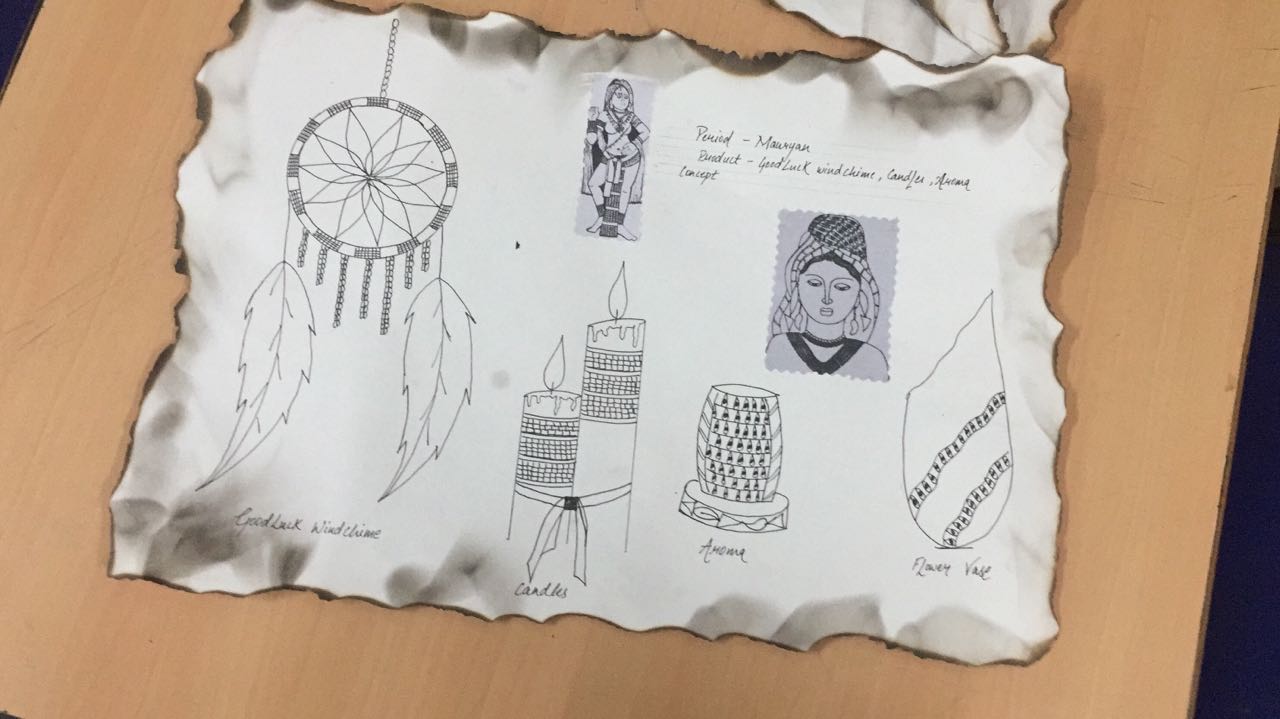 Period - Mauryan
Product - GoodLuck windchime, Candles, Aroma
Concept
GoodLuck Windchime
Candles
Aroma
Flower Vase